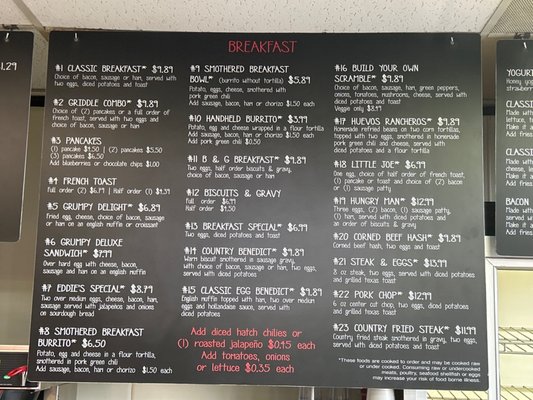 BREAKFAST
#1 CLASSIC BREAKFAST* $9.89
Choice of bacon, sausage or ham, served with
two eggs, diced potatoes and toast
#2 GRIDDLE COMBO* $9.89
Choice of (2) pancakes or a full order of
french toast, served with two eggs and
choice of bacon, sausage or ham
#3 PANCAKES
(1) pancake $4.50 | (2) pancakes $5.50
(3) pancakes $6.50
Add blueberries or chocolate chips $1.00
#4 FRENCH TOAST
Full order (2) $6.79 | Half order (1) $4.59
#5 GRUMPY DELIGHT* $6.89
fried egg, cheese, choice bacon, sausage
or ham on an english muffin or croissant
#6 GRUMPY DELUXE
SANDWICH* $7.99
Over hard egg with cheese, bacon,
sausage and ham on an english muffin
#7 EDDIE'S SPECIAL* $8.79
Two over medium eggs, cheese, bacon, ham,
sausage served with jalapeños and onions
on sourdough bread
#8 SMOTHERED BREAKFAST
BURRITO* $6.50
Potato, egg and cheese in a flour tortilla,
smothered in pork green chili
Add sausage, bacon, ham or chorizo $1.50 each
#9 SMOTHERED VEGGIE
BOWL* (burrito without tortilla) $5.89
Potato, eggs, cheese, smothered with
pork green chili
Add sausage, bacon, ham or chorizo $1.50 each
#10 HANDHELD BURRITO* $3.99
Potato, egg and cheese wrapped in a flour tortilla
Add sausage, bacon, ham or chorizo $1.50 each
Add pork green chili $0.50
#11 B & G BREAKFAST* $9.89
Two eggs, half order biscuits & gravy,
choice of bacon, sausage or ham
#12 BISCUITS & GRAVY
full order $6.99
Half order $4.50
#13 BREAKFAST SPECIAL* $6.99
Two eggs, diced potatoes and toast
#14 COUNTRY BENEDICT* $9.89
Warm biscuit smothered in sausage gravy,
with choice of bacon, sausage or ham, two eggs,
served with diced potatoes
#15 CLASSIC EGG BENEDICT* $9.89
English muffin topped with ham, two over medium
eggs and hollandaise sauce, served with
diced potatoes
Add diced hatch chilies or
(1) roasted jalapeño $0.45 each
Add tomatoes, onions
or lettuce $0.35 each
#16 BUILD YOUR OWN
SCRAMBLE* $9.89
Choice of bacon, sausage, ham, green peppers,
onions, tomatoes, mushrooms, cheese, served with
diced potatoes and toast
Veggie only $8.89
#17 HUEVOS RANCHEROS* $9.89
Homemade refried beans on two corn tortillas,
topped with two eggs, smothered in homemade
pork green chili and cheese, served with
diced potatoes and a flour tortilla
#18 LITTLE JOE* $6.99
One egg, choice of half order of french toast,
(1) pancake or toast and choice of (2) bacon
or (1) sausage patty
#19 HUNGRY MAN* $12.99
Three eggs, (2) bacon, (1) sausage patty,
(1) ham, served with diced potatoes and
an order of biscuits & gravy
#20 CORNED BEEF HASH* $9.89
Corned beef hash, two eggs and toast
#21 STEAK & EGGS* $15.99
8 oz steak, two eggs, served with diced potatoes
and grilled texas toast
#22 PORK CHOP* $12.99
6 oz center cut chop, two eggs, diced potatoes
and grilled texas toast
#23 COUNTRY FRIED STEAK* $11.99
Country fried steak smothered in gravy, two eggs,
served with diced potatoes and toast
*These foods are cooked to order and may be cooked raw
or under cooked. Consuming raw or undercooked
meats, poultry, seafood shellfish or eggs
may increase your risk of food borne illness.
1.29
YOGURT
Honey
strawberr
CLASSIC
lettuce,
Make it
Add
CLASSIC
Make it a
Add
BACON
Made with
Add